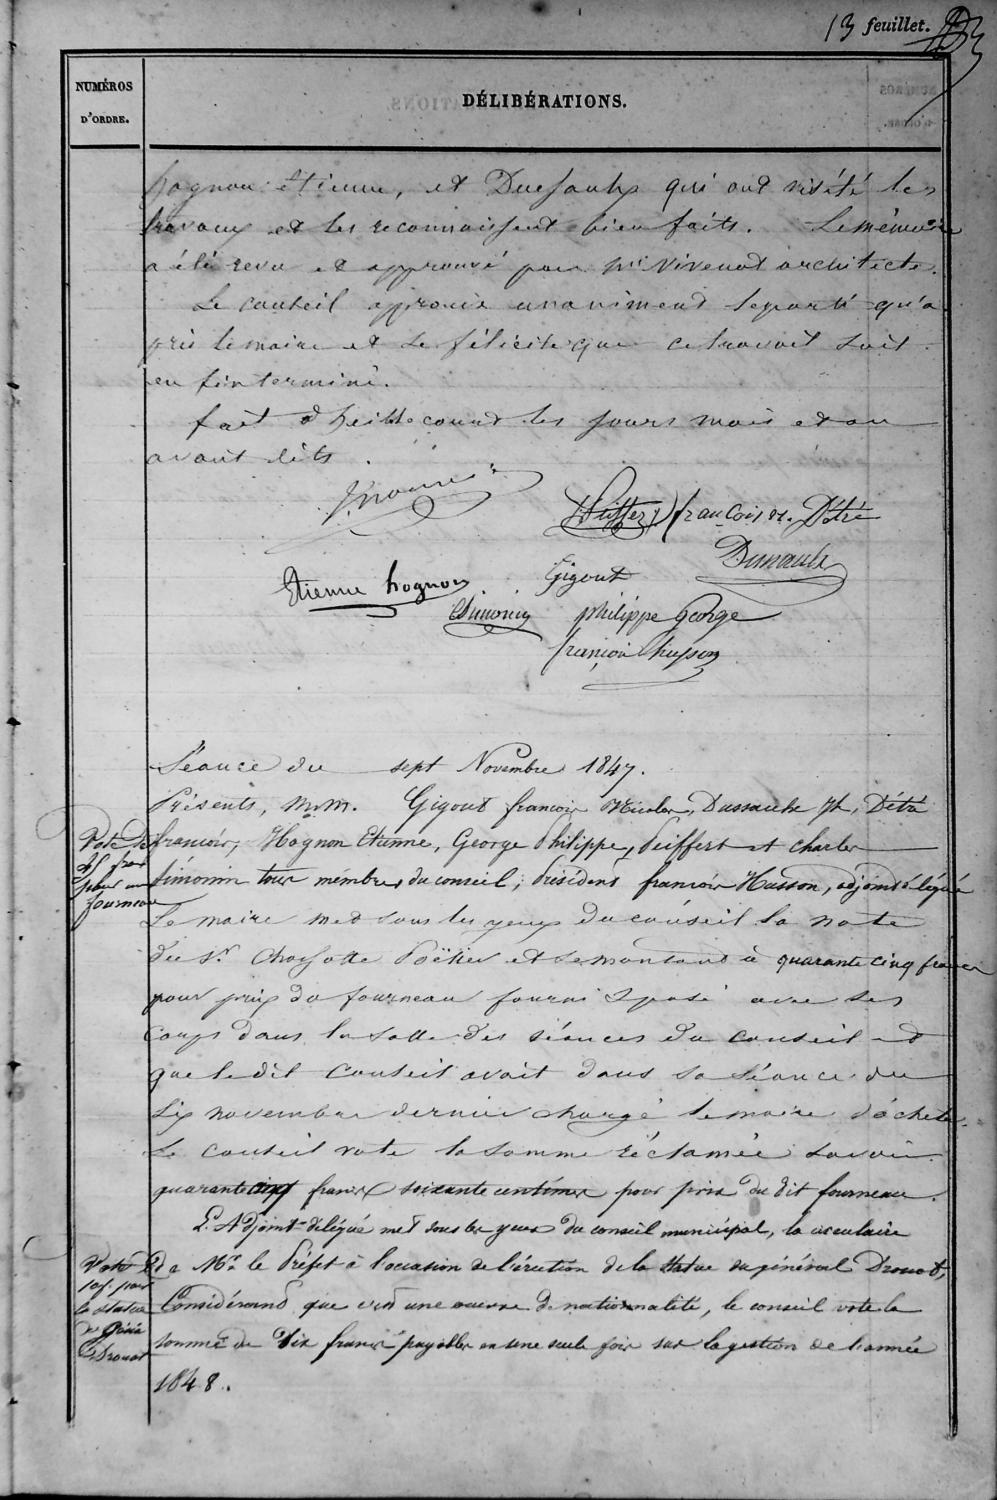 13 feuillet.
NUMÉROS
D'ORDRE.
DÉLIBÉRATIONS.
hognon étienne, et Dussaulx qui ont visité les
travaux et les reconnaissent bien faits. Le mémoire
a été revu et approuvé par Mr Vivenot architecte.
Le conseil approuve unanimement le parti qu'a
pris le maire et se félicite que ce travail soit
en fin terminé.
fait à heillecourt les jours mois et an
avant dits.
Peiffert françois Détré
Dussaulx
Etienne hognon Gigout
CSimonin philippe George
françois husson
Séance du sept Novembre 1847.
Présents, M.M. Gigout françois Nicolas, Dussaulx Jh, Détré
françois, Hognon Etienne, George Philippe, Peiffert et charles
Simonin tous membres du conseil; Président françois Husson, adjoint délégué
Vote de
45f pour
un
fourneau
Le maire met sous les yeux du conseil la note
du Sr et se montant à quarante cinq francs
pour prix du fourneau fourni et posé avec ses
corps dans la salle des séances du conseil et
que le dit conseil avait dans sa séance du
six novembre dernier chargé le maire d'acheter.
Le conseil vote la somme réclamée savoir
quarante cinq francs soixante centimes pour prix du dit fourneau.
L'Adjoint délégué met sous les yeux du conseil municipal, la circulaire
de Mr. le Préfet à l'occasion de l'érection de la statue du général Drouot,
Vote de
10f. pour
la statue
du Géral
Drouot
Considérant que c'est une œuvre de nationalité, le conseil vote la
somme de dix francs payables en une seule fois sur la gestion de l'année
1848.